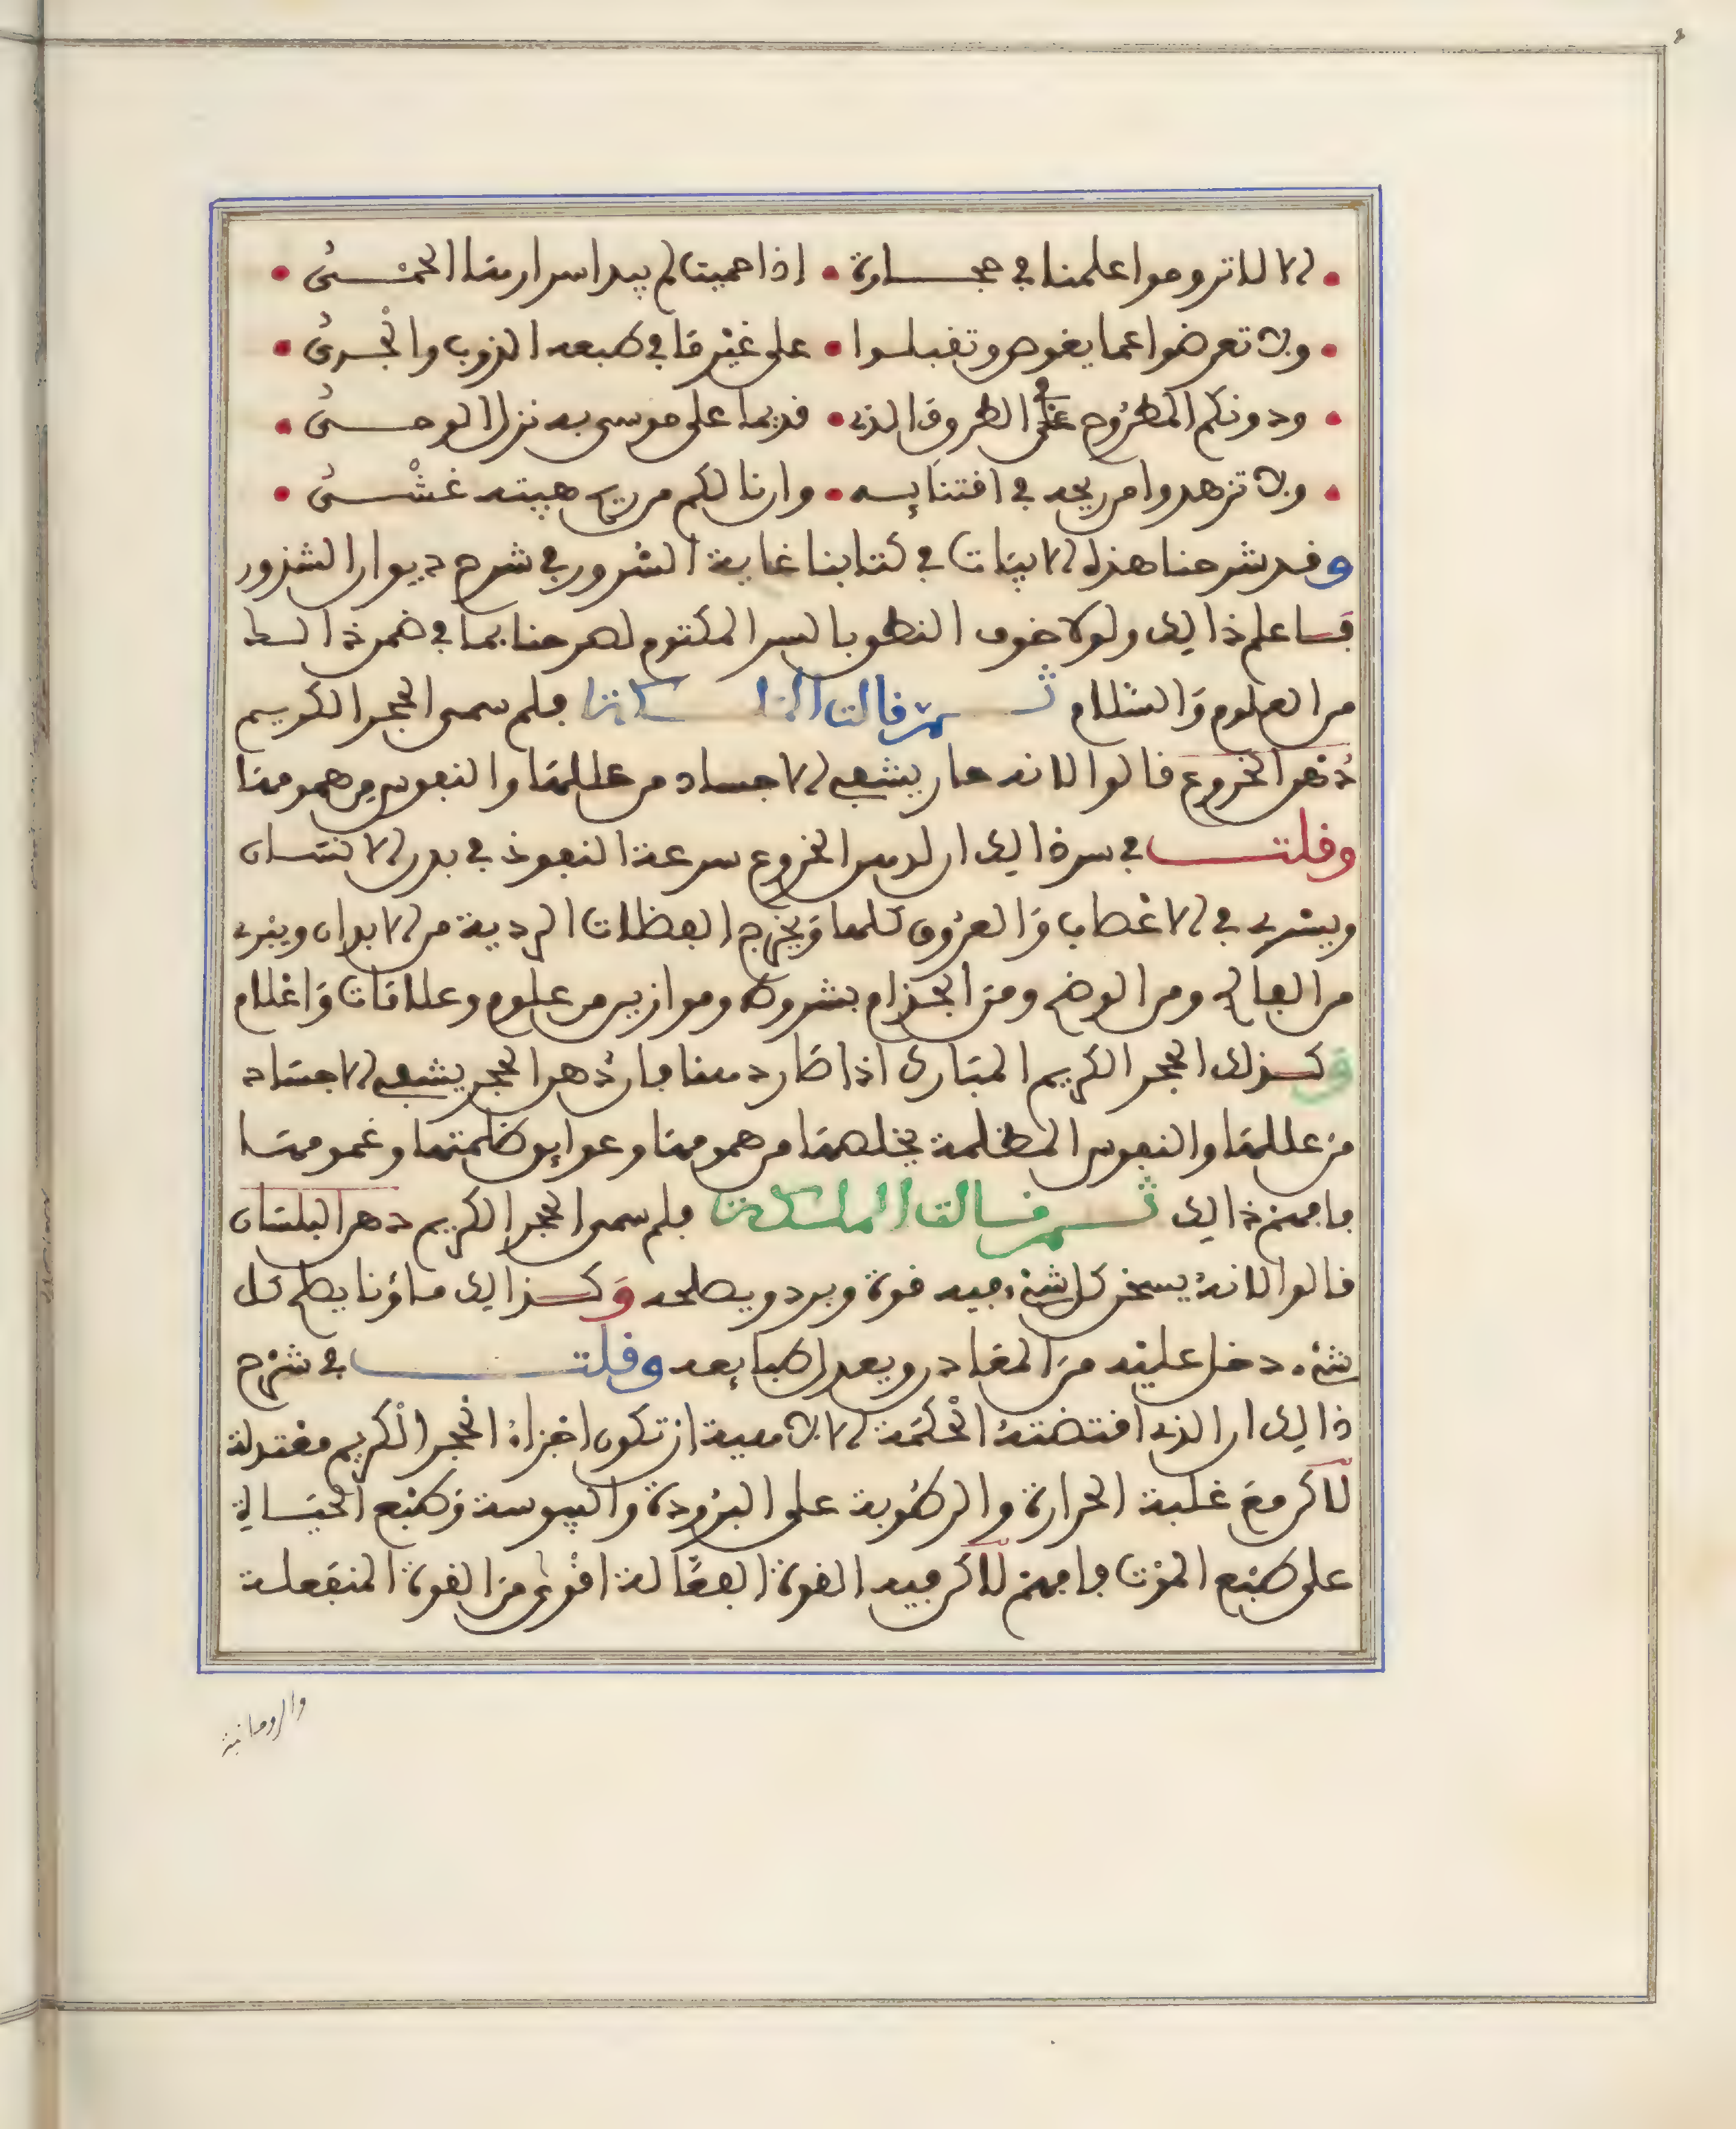 الا لا تروموا علمنا في حجارة • اذا حميت لم يبد اسرارها الحمى •
ولا تعرضوا عما يغوص وتقبلوا • على غير ما في طبعه الذوب والجرى •
ودونكم المطروح في الطروق الذي • قديما على موسى به نزل الوحى •
ولا تزهدوا من ريحه في اقتنايه • وان نالكم من ريح هيبته غشى •
وقد شرحنا هذه الابيات في كتابنا غاية السرور في شرح ديوان الشذور
فاعلم ذالك ولولا خوف النطق بالسر المكتوم لصرحنا بما في ضمن ذالك
من العلوم والسلام ثم قالت الملكة فلم سمى الحجر الكريم
دهن الخروع قالوا لانه حار يشفي الاجساد من عللها والنفوس من همومها
وقلت في سر ذالك ان لدهن الخروع سرعة النفوذ في بدن الانسان
ويسري في الاعصاب والعروق كلها ويخرج الفضلات الردية من الابدان ويبرى
من الفالج ومن الوضح ومن الجذام بشروط وموازين من علوم وعلامات واعلام
وكذلك الحجر الكريم المبارك اذا صار دهنا فان دهن الحجر يشفي الاجساد
من عللها والنفوس المظلمة يخلصها من همومها وعوايق ظلمتها وغمومها
فافهم ذالك ثم قالت الملكة فلم سمى الحجر الكريم دهن البلسان
قالوا لانه يسخن كل شيء فيه قوة وبرد ويصلحه وكذالك ماؤنا يصلح كل
شيء دخل عليه من المعادن ويعدل طبايعه وقلت في شرح
ذالك ان الذي اقتضته الحكمة الالاهية ان تكون اجزاء الحجر الكريم معتدلة
لاكن مع غلبة الحرارة والرطوبة على البرودة واليبوسة وطبع الحياة
على طبع الموت فافهم لاكن فيه القوة الفعالة اقوى من القوة المنفعلة
والروحانية